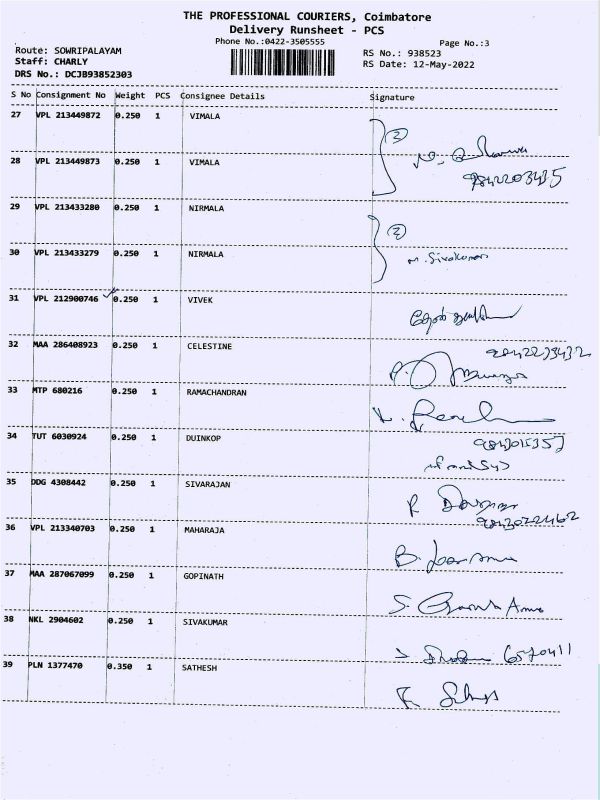 THE PROFESSIONAL COURIERS, Coimbatore
Delivery Runsheet - PCS
Phone No.:0422-3505555
Page No.:3
Route: SOWRIPALAYAM
RS No.: 938523
Staff: CHARLY
RS Date: 12-May-2022
DRS No.: DCJB93852303
S No Consignment No Weight PCS Consignee Details Signature
27 VPL 213449872 0.250 1 VIMALA
2
28 VPL 213449873 0.250 1 VIMALA
9842203435
29 VPL 213433280 0.250 1 NIRMALA
2
30 VPL 213433279 0.250 1 NIRMALA
M. Sivakumar
31 VPL 212900746 0.250 1 VIVEK
32 MAA 286408923 0.250 1 CELESTINE
33 MTP 680216 0.250 1 RAMACHANDRAN
34 TUT 6030924 0.250 1 DUINKOP
35 DDG 4308442 0.250 1 SIVARAJAN
36 VPL 213340703 0.250 1 MAHARAJA
37 MAA 287067099 0.250 1 GOPINATH
38 NKL 2904602 0.250 1 SIVAKUMAR
6570411
39 PLN 1377470 0.350 1 SATHESH